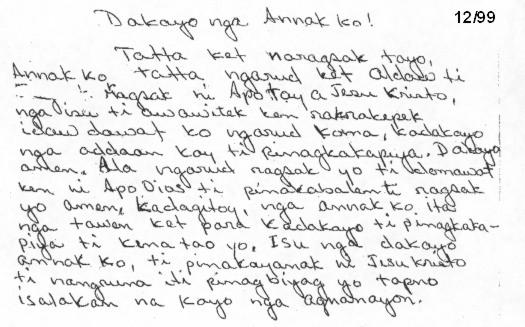 12/99
Dakayo nga Annak ko!
Tatta ket naragsak tayo,
Annak ko tatta ngarud ket aldaw ti
Ragsak ni Apo Tay a Jesu Kristo,
nga Jisu ti awawitek ken raknakepek
idawdawat ko ngarud koma, kadakayo
nga addaan kay ti pinagkatapiya. Dakayo
amen, Ala ngarud ragsak yo ti
ken ni Apo Dios ti pinakabalenti ragsak
yo amen, kadagitoy, nga annak ko ita
nga tawen ket para kadakayo ti pinagkata-
piya ti kina tao yo. Isu nga dakayo
annak ko, ti pinakayanak ni Jisukristo
ti nanguna iti pinagbiyag yo tapno
isalakan na kayo nga agnanayon.